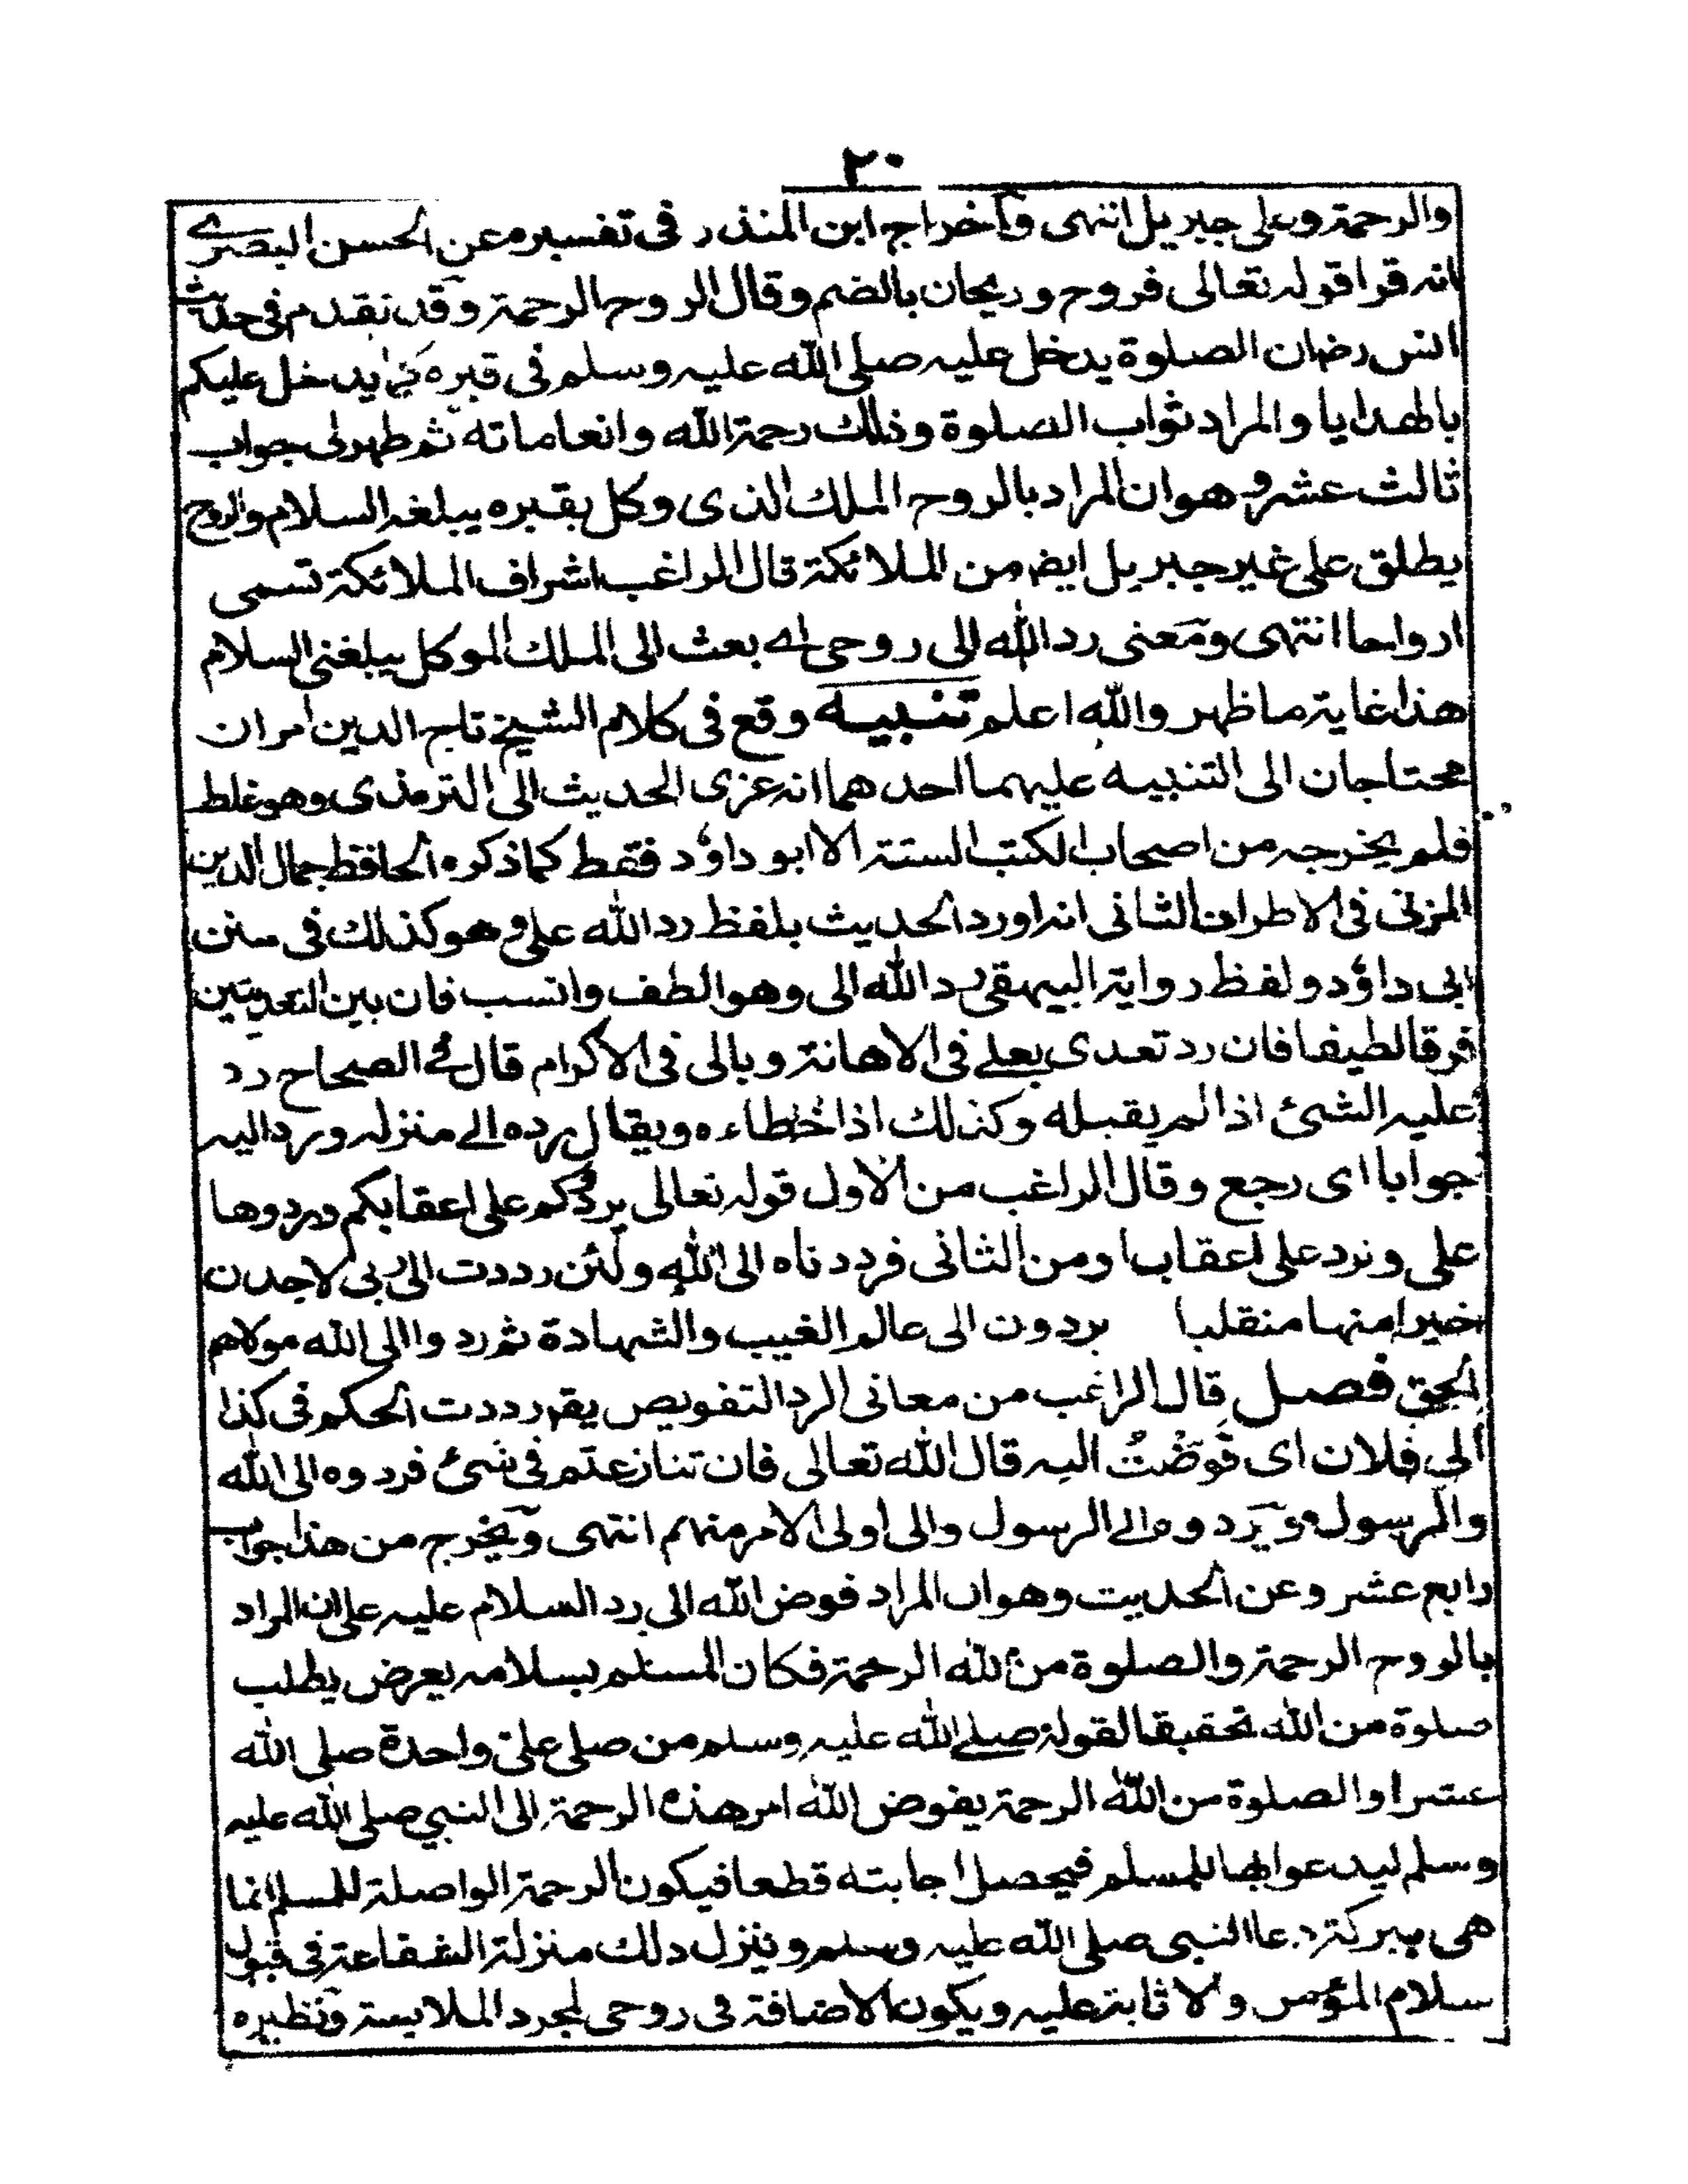 ٢٠
والرحمة وعلى جبريل انتهى وآخراج ابن المنذر فى تفسيره عن الحسن البصرى
انه قرا قوله تعالى فروح وريحان بالضم وقال الروح الرحمة وقد تقدم فى حديث
انس رضـان الصلوة يدخل عليه صلى الله عليه وسلم فى قبره كما يدخل عليكم
بالهدايا والمراد ثواب الصلوة وذلك رحمة الله وانعاماته ثم ظهر لى جواب
ثالث عشر و هو ان المراد بالروح الملك الذى وكل بقبره يبلغه السلام والروح
يطلق على غير جبريل ايضـ من الملائكة قال الراغب اشراف الملائكة تسمى
ارواحا انتهى ومعنى رد الله الى روحى اے بعث الى الملك الموكل يبلغنى السلام
هذا غاية ما ظهر والله اعلم تنبيه وقع فى كلام الشيخ تاج الدين امران
محتاجان الى التنبيه عليهما احدهما انه عزى الحديث الى الترمذى وهو غلط
فلم يخرجه من اصحاب الكتب الستة الا ابو داؤد فقط كما ذكره الحافظ جمال الدين
المزنى فى الاطراف الثانى انه اورد الحديث بلفظ رد الله على و هو كذلك فى سنن
ابى داؤد ولفظ رواية البيهقى رد الله الى وهو الطف وانسب فان بين التعديتين
فرقا لطيفا فان رد تعدى بعلے فى الاهانة وبالى فى الاكرام قال فے الصحاح رد
عليه الشئ اذا لم يقبله وكذلك اذا خطاءه ويقال رده الے منزله ورد اليه
جوابا اى رجع وقال الراغب من الاول قوله تعالى يردوكم على اعقابكم وردوها
على ونرد على اعقابنا ومن الثانى فرددناه الى الله ولئن رددت الى ربى لاجدن
خيرا منها منقلبا يردون الى عالم الغيب والشهادة ثم ردوا الى الله مولاهم
الحق فصل قال الراغب من معانى الرد التفويض يقـ رددت الحكم فى كذا
الى فلان اى فَوَّضْتُ اليه قال الله تعالى فان تنازعتم فى شئ فردوه الى الله
والرسول ويَردوه الے الرسول والى اولى الامر منهم انتهى ويخرج من هذا جواب
رابع عشر وعن الحديث وهو ان المراد فوض الله الى رد السلام عليه على ان المراد
بالروح الرحمة والصلوة من الله الرحمة فكان المسلم بسلامه يعرض يطلب
صلوة من الله تحقيقا لقوله صلے الله عليه وسلم من صلى على واحدة صلى الله
عشرا والصلوة من الله الرحمة يفوض الله امر هذه الرحمة الى النبي صلى الله عليه
وسلم ليدعوا بها للمسلم فيحصل اجابته قطعا فيكون الرحمة الواصلة للمسلم انما
هى ببركة دعا النبى صلى الله عليه وسلم وينزل ذلك منزلة الشفاعة فى قبول
سلام المؤمن ولا ثابة عليه ويكون الاضافة فى روحى لمجرد الملابسة ونظيره